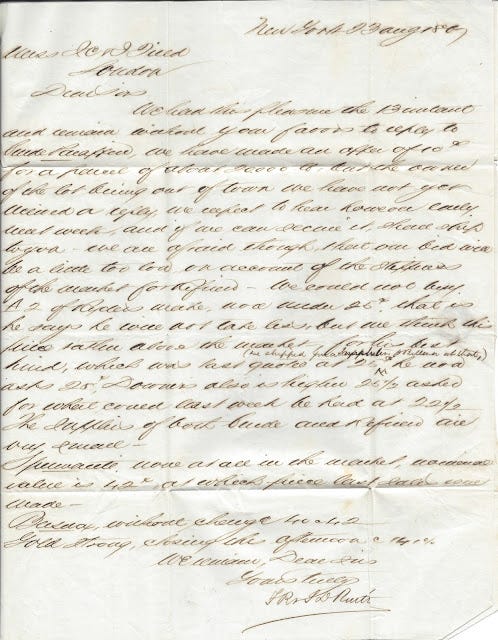 New York 23 Aug 186
Mess J C & J Field
London
Dear Sirs
We had this pleasure the 13 instant
and remain without your favors to reply to
Crude Paraffine, we have made an offer of 10 c
for a parcel of about 20000 lb, but the owner
of the lot being out of town we have not yet
received a reply, we expect to hear however early
next week, and if we can secure it, shall ship
to you - we are afraid though that our bid will
be a little too low on account of the stiffness
of the market for Refined - We could not buy
A 2 of make, now under 25 c, that is
he says he will not take less, but we think this
price rather above the market, for his best
(we shipped you a sample)
kind, which was last quoted at he now
asks 25 c, Downers also is higher 25 1/2 asked
for what could last week be had at 22 1/2
The supplies of both Crude and Refined are
very small -
Spermacite, none at all in the market, nominal
value is 42 c, at which price last sales were
made -
without change 40 a 42
Gold strong, closing this afternoon
We remain, Dear Sirs
Yours truly